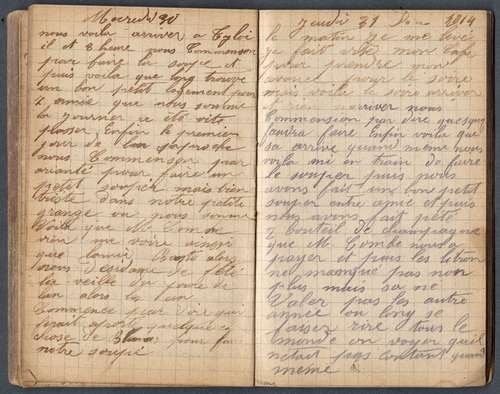 Mecredi 30
nous voila arriver a
il et 8 heure nous Commenson
par faire la soupe et
puis voila que lon trouve
un bon petit logement pour
7 amie que nous somme
la journer a été vite
passer Enfin le premier
jour de lan saproche
nous Commenson par
pour faire un
petit souper mais bien
triste dans notre petite
grange ou nous somme
Voila que M. Com
rien me voire ainsi
que lounis alors
de fété
la veille du jour de
lan alors la
Commence par dire qui
serait quelque
chose de pour
notre soupé
Jeudi 31 1914
le matin je me levé
je fait vite mon Café
pour prendre mon
pour le soire
mais voila le soire arriver
et rien narriver nous
Commension par dire quesquon
faudra faire Enfin voila que
sa arrive quand meme nous
voila mi en train de faire
le souper puis nous
avons fait un bon petit
souper entre amie et puis
nous avons fait peté
7 bouteil de champagne
que M. Combe nous a
payer et puis les litron
ne manque pas non
plus mais sa ne
Valer pas les autre
année ou lon se
faiser rire tous le
monde on voyer quil
netait pas contant quand
meme